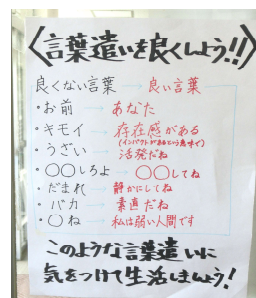 〈言葉遣いを良くしよう!!〉
良くない言葉 → 良い言葉
・お前 → あなた
・キモイ → 存在感がある
(インパクトがあるという意味で)
・うざい → 活発だね
・〇〇しろよ → 〇〇してね
・だまれ → 静かにしてね
・バカ → 素直だね
・〇ね → 私は弱い人間です
このような言葉遣いに
気をつけて生活しましょう!